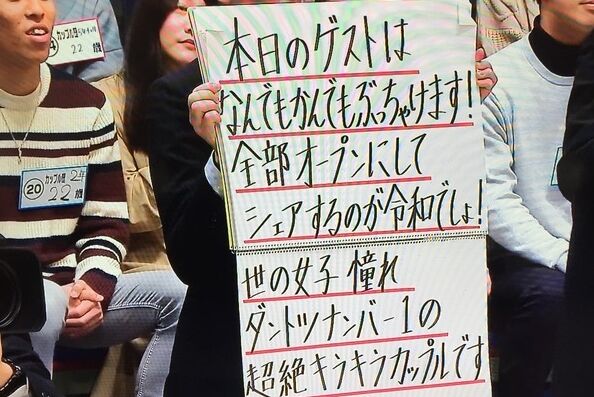 本日のゲストは
なんでもかんでもぶっちゃけます!
全部オープンにして
シェアするのが令和でしょ!
世の女子 憧れ
ダントツナンバー1の
超絶キラキラカップルです
カップル歴
22歳
20 カップル歴 2年
22歳